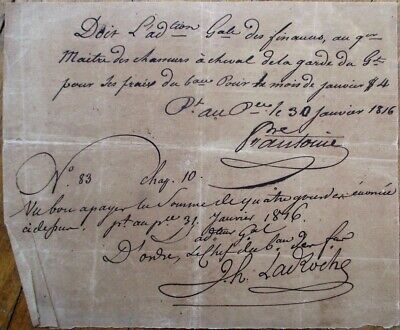 Doit L'ad.tion G.ale des finances, au q.er
Maitre des chasseurs à cheval de la garde du G.t
pour ses frais du bau Pour le mois de janvier $4
P.t au P.ce le 30 janvier 1816
B.re antoine
N.o 83 chap. 10.
Vu bon a payer la Somme de quatre gourdes en monnie
p.t au p.ce 31 Janvier 1816.
ad.teur G.al
D'ordre, Le Chef du b.au des fin.
Jh. LaRoche